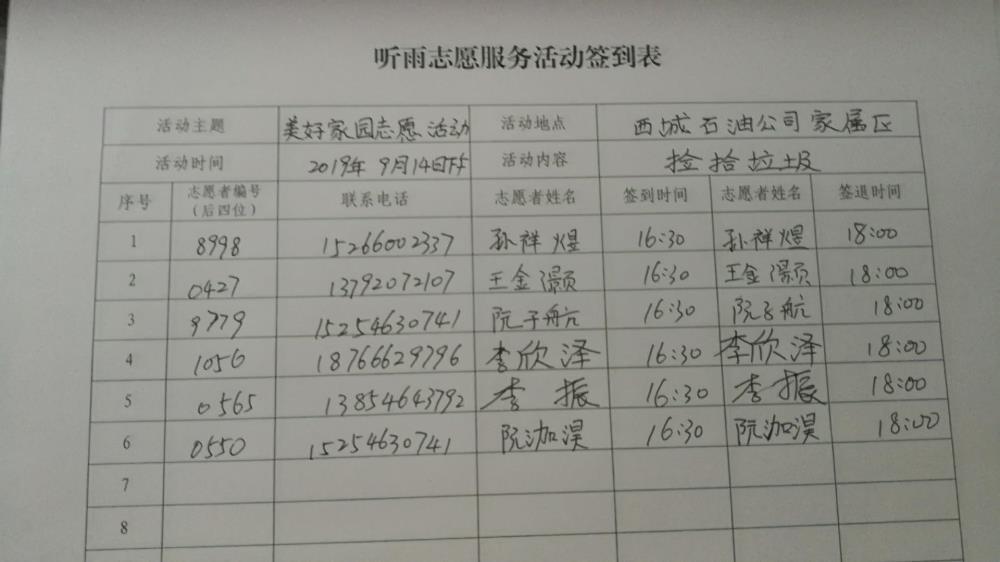 听雨志愿服务活动签到表
活动主题 美好家园志愿活动 活动地点 西城石油公司家属区
活动时间 2019年9月14日下午 活动内容 捡拾垃圾
序号 志愿者编号（后四位） 联系电话 志愿者姓名 签到时间 志愿者姓名 签退时间
1 8998 15266002337 孙祥煜 16:30 孙祥煜 18:00
2 0427 13792072107 王金灏 16:30 王金灏 18:00
3 9779 15254630741 阮子航 16:30 阮子航 18:00
4 1056 18766629796 李欣泽 16:30 李欣泽 18:00
5 0565 13854643792 李振 16:30 李振 18:00
6 0550 15254630741 阮泇淏 16:30 阮泇淏 18:00
7
8